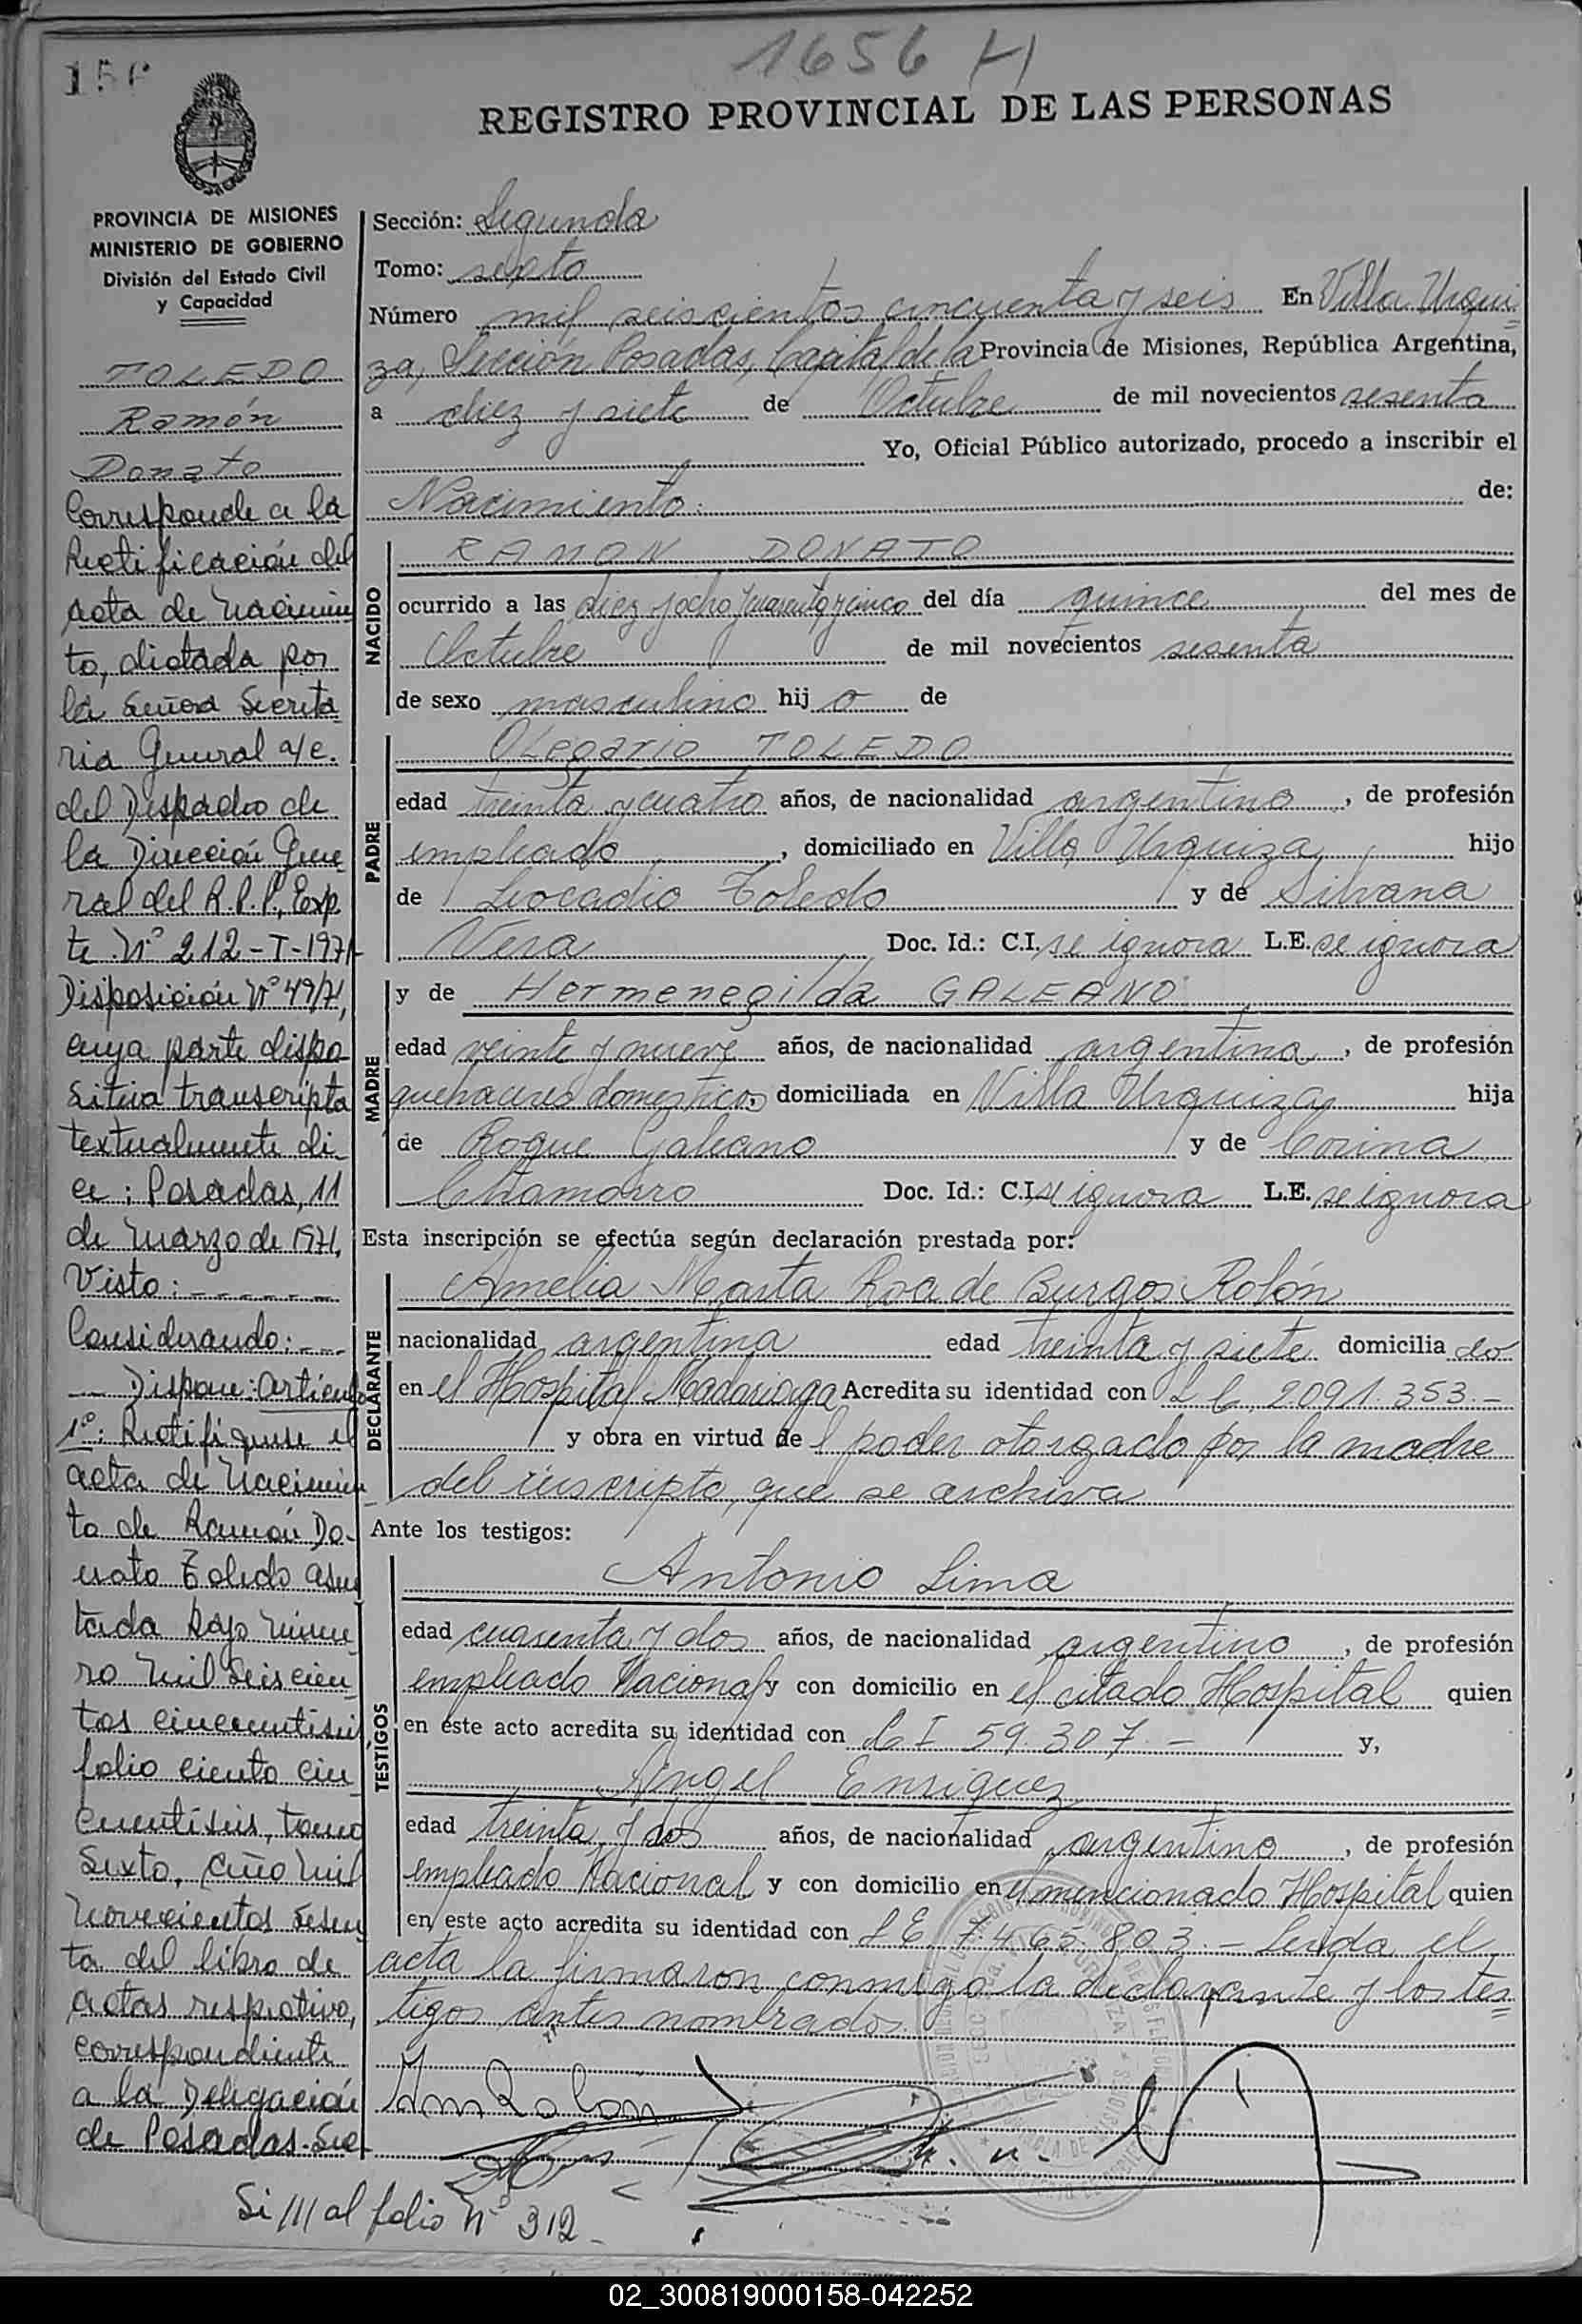 1656 H
156
REGISTRO PROVINCIAL DE LAS PERSONAS
PROVINCIA DE MISIONES
MINISTERIO DE GOBIERNO
División del Estado Civil
y Capacidad
TOLEDO
Ramón
Donato
Corresponde a la
Rectificación del
acta de Nacimien
to, dictada por
la Señora Secreta
ria General a/c.
del Despacho de
la Dirección Gene
ral del R.P.P., Exp.
te Nº 212-T-1971
Disposición Nº 49/71,
cuya parte dispo
sitiva transcripta
textualmente di-
ce: Posadas, 11
de Marzo de 1971,
Visto: - - - - - -
Considerando: - - -
-- Dispone: Artículo
1º: Rectifíquese el
acta de Nacimien
to de Ramón Do-
nato Toledo asen
tada bajo núme
ro mil seiscien
tos cincuentiseis
folio ciento cin
cuentiseis, tomo
Sexto, año mil
novecientos sesen
ta del libro de
actas respectivo,
correspondiente
a la Delegación
de Posadas-Sec
Si /// al folio Nº 312
Sección: Segunda
Tomo: sexto
Número mil seiscientos cincuenta y seis En Villa Urqui=
za, Sección Posadas, Capital de la Provincia de Misiones, República Argentina,
a diez y siete de Octubre de mil novecientos sesenta
Yo, Oficial Público autorizado, procedo a inscribir el
Nacimiento de:
NACIDO
RAMON DONATO
ocurrido a las diez y ocho y cuarenta y cinco del día quince del mes de
Octubre de mil novecientos sesenta
de sexo masculino hij o de
PADRE
Olegario TOLEDO
edad treinta y cuatro años, de nacionalidad argentino, de profesión
empleado, domiciliado en Villa Urquiza hijo
de Leocadio Toledo y de Silvana
Vera Doc. Id.: C.I. se ignora L.E. se ignora
MADRE
y de Hermenegilda GALEANO
edad veinte y nueve años, de nacionalidad argentina, de profesión
quehaceres domesticos domiciliada en Villa Urquiza hija
de Roque Galeano y de Corina
Chamorro Doc. Id.: C.I. se ignora L.E. se ignora
Esta inscripción se efectúa según declaración prestada por:
DECLARANTE
Amelia Marta Roa de Burgos Rolón
nacionalidad argentina edad treinta y siete domicilia do
en el Hospital Madariaga Acredita su identidad con L C 2091.353.-
y obra en virtud de l poder otorgado por la madre
del inscripto, que se archiva
Ante los testigos:
TESTIGOS
Antonio Lima
edad cuarenta y dos años, de nacionalidad argentino, de profesión
empleado Nacional y con domicilio en el citado Hospital quien
en este acto acredita su identidad con C I 59.307.- y,
Angel Enriquez
edad treinta y dos años, de nacionalidad argentino, de profesión
empleado Nacional y con domicilio en el mencionado Hospital quien
en este acto acredita su identidad con L E 7.465.803.- Leida el
acta la firmaron conmigo la declarante y los tes=
tigos antes nombrados.
02_300819000158-042252